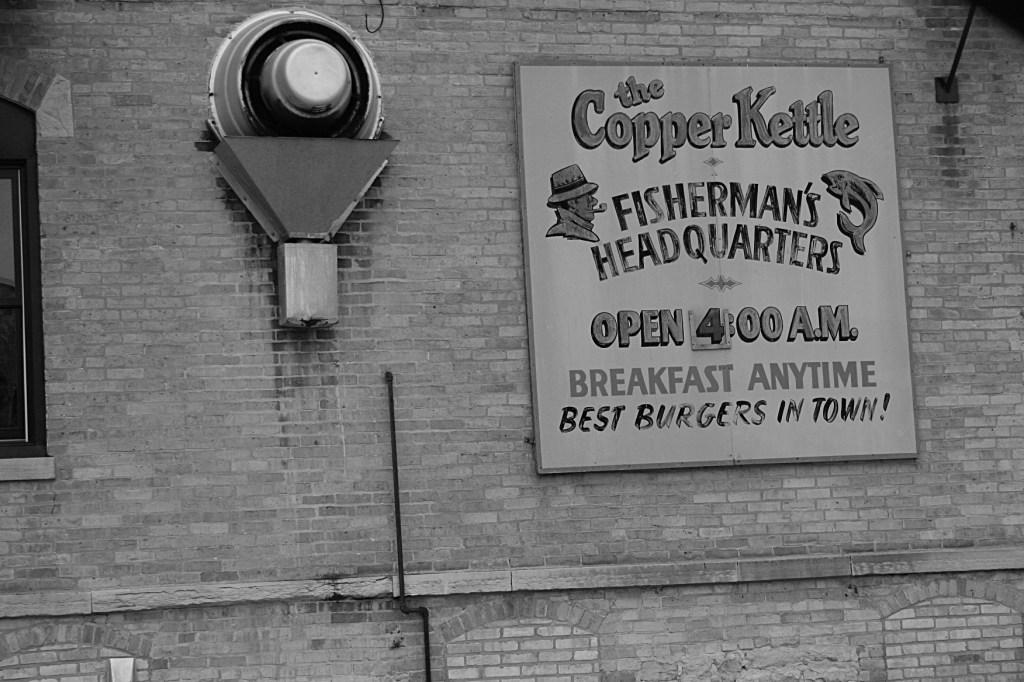 the
Copper Kettle
FISHERMAN'S
HEADQUARTERS
OPEN 4:00 A.M.
BREAKFAST ANYTIME
BEST BURGERS IN TOWN!